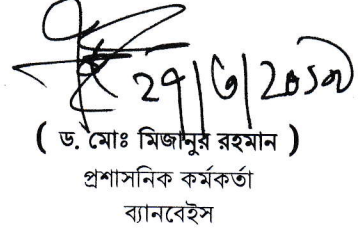 ( ড. মোঃ মিজানুর রহমান )
প্রশাসনিক কর্মকর্তা
ব্যানবেইস